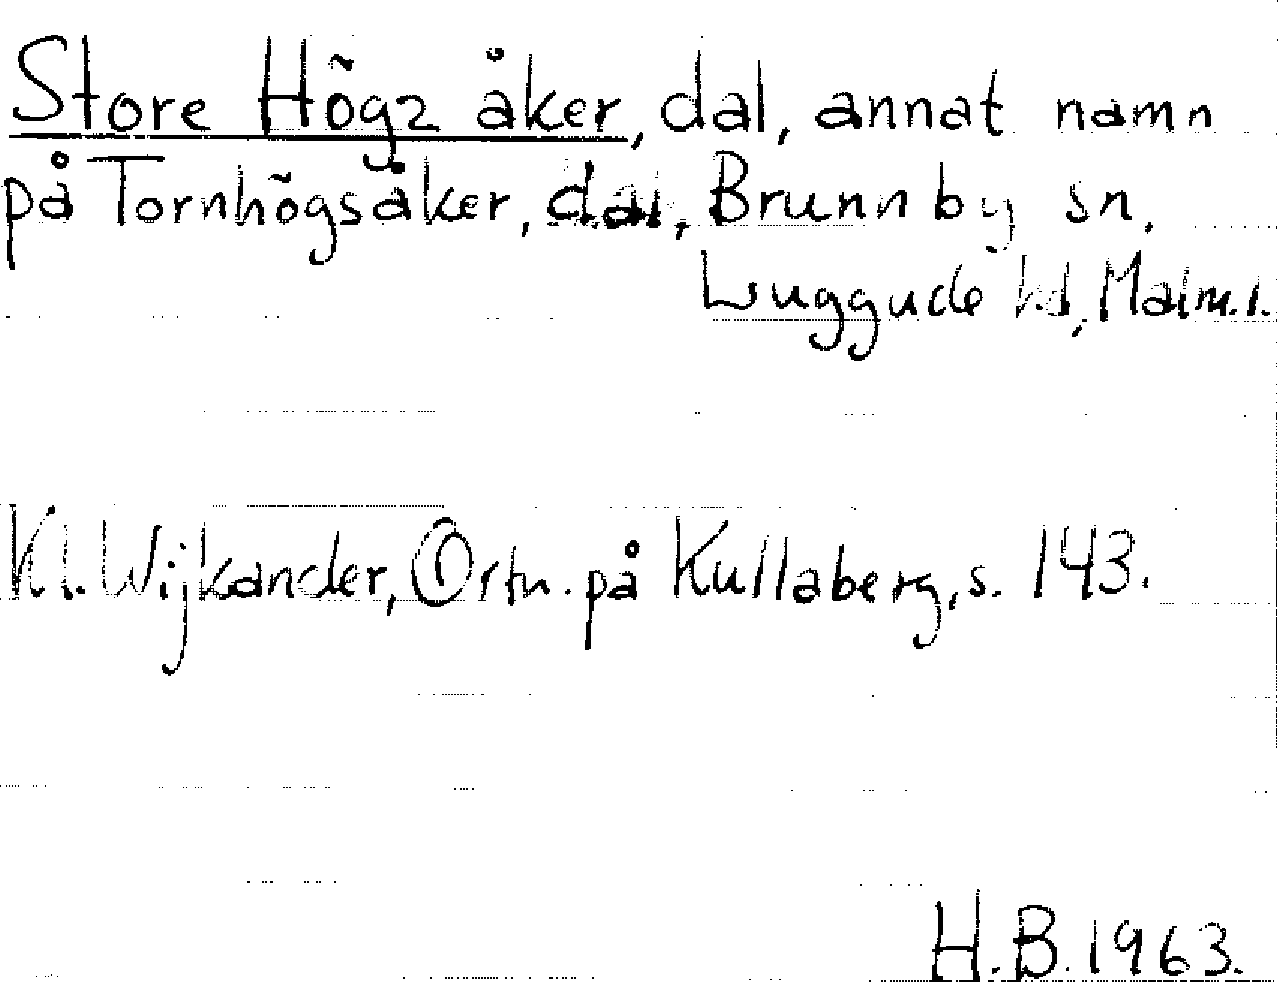 Store Högz åker, dal, annat namn
på Tornhögsåker, dal, Brunnby sn,
Luggude hd, Malm. l.
Kl. Wijkander, Ortn. på Kullaberg, s. 143.
H.B. 1963.